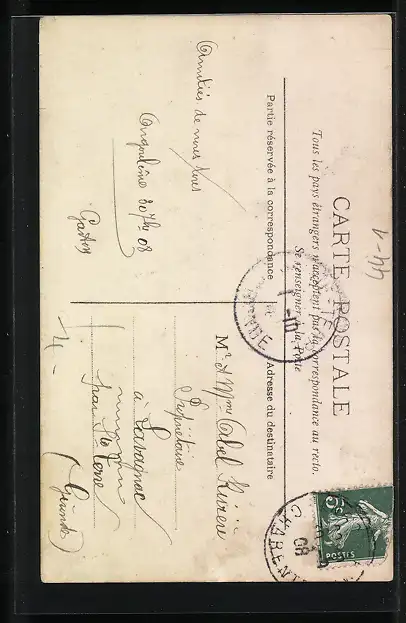 CARTE POSTALE
Tous les pays étrangers n'acceptent pas la correspondance au recto.
Se renseigner à la Poste
Partie réservée à la correspondance
Adresse du destinataire
Amitiés de nous tous
Angoulême 30 7bre 08
Gaston
Mr & Mme Abel
Propriétaire
à
par Ste Terre
(Gironde)
44-1
-4-
5c
POSTES
CHARENTE
08